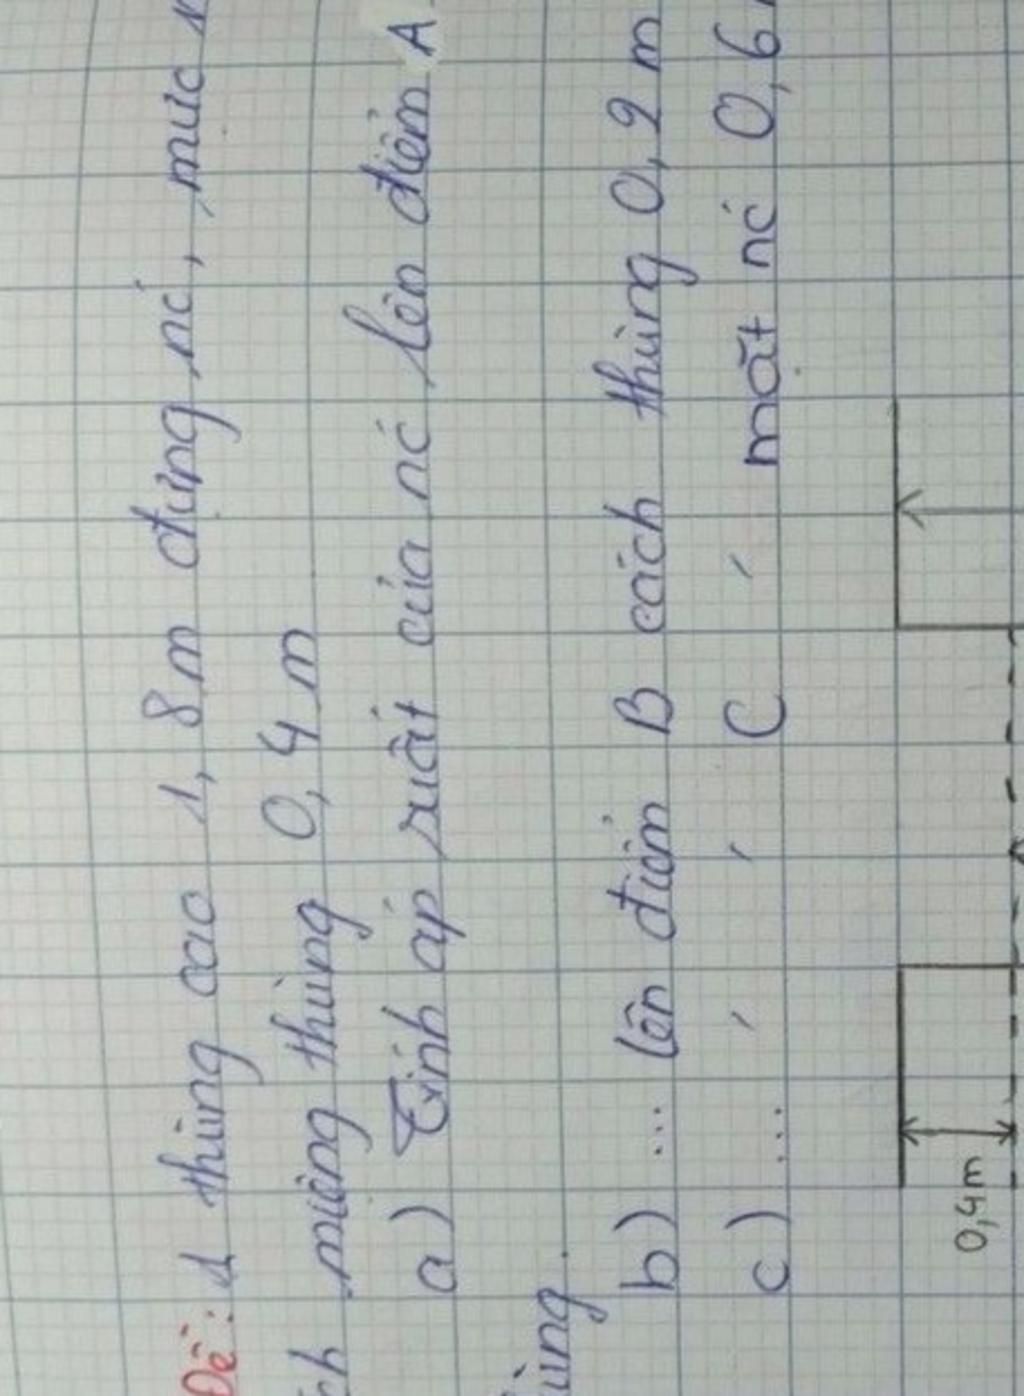 Đề: 1 thùng cao 1,8m đựng nć, mức
miệng thùng 0,4m
a) Tính áp suất của nć lên điểm A
b) ... lên điểm B cách thùng 0,2 m
c) ... ′ ′ C ′ mặt nć 0,6
0,4m